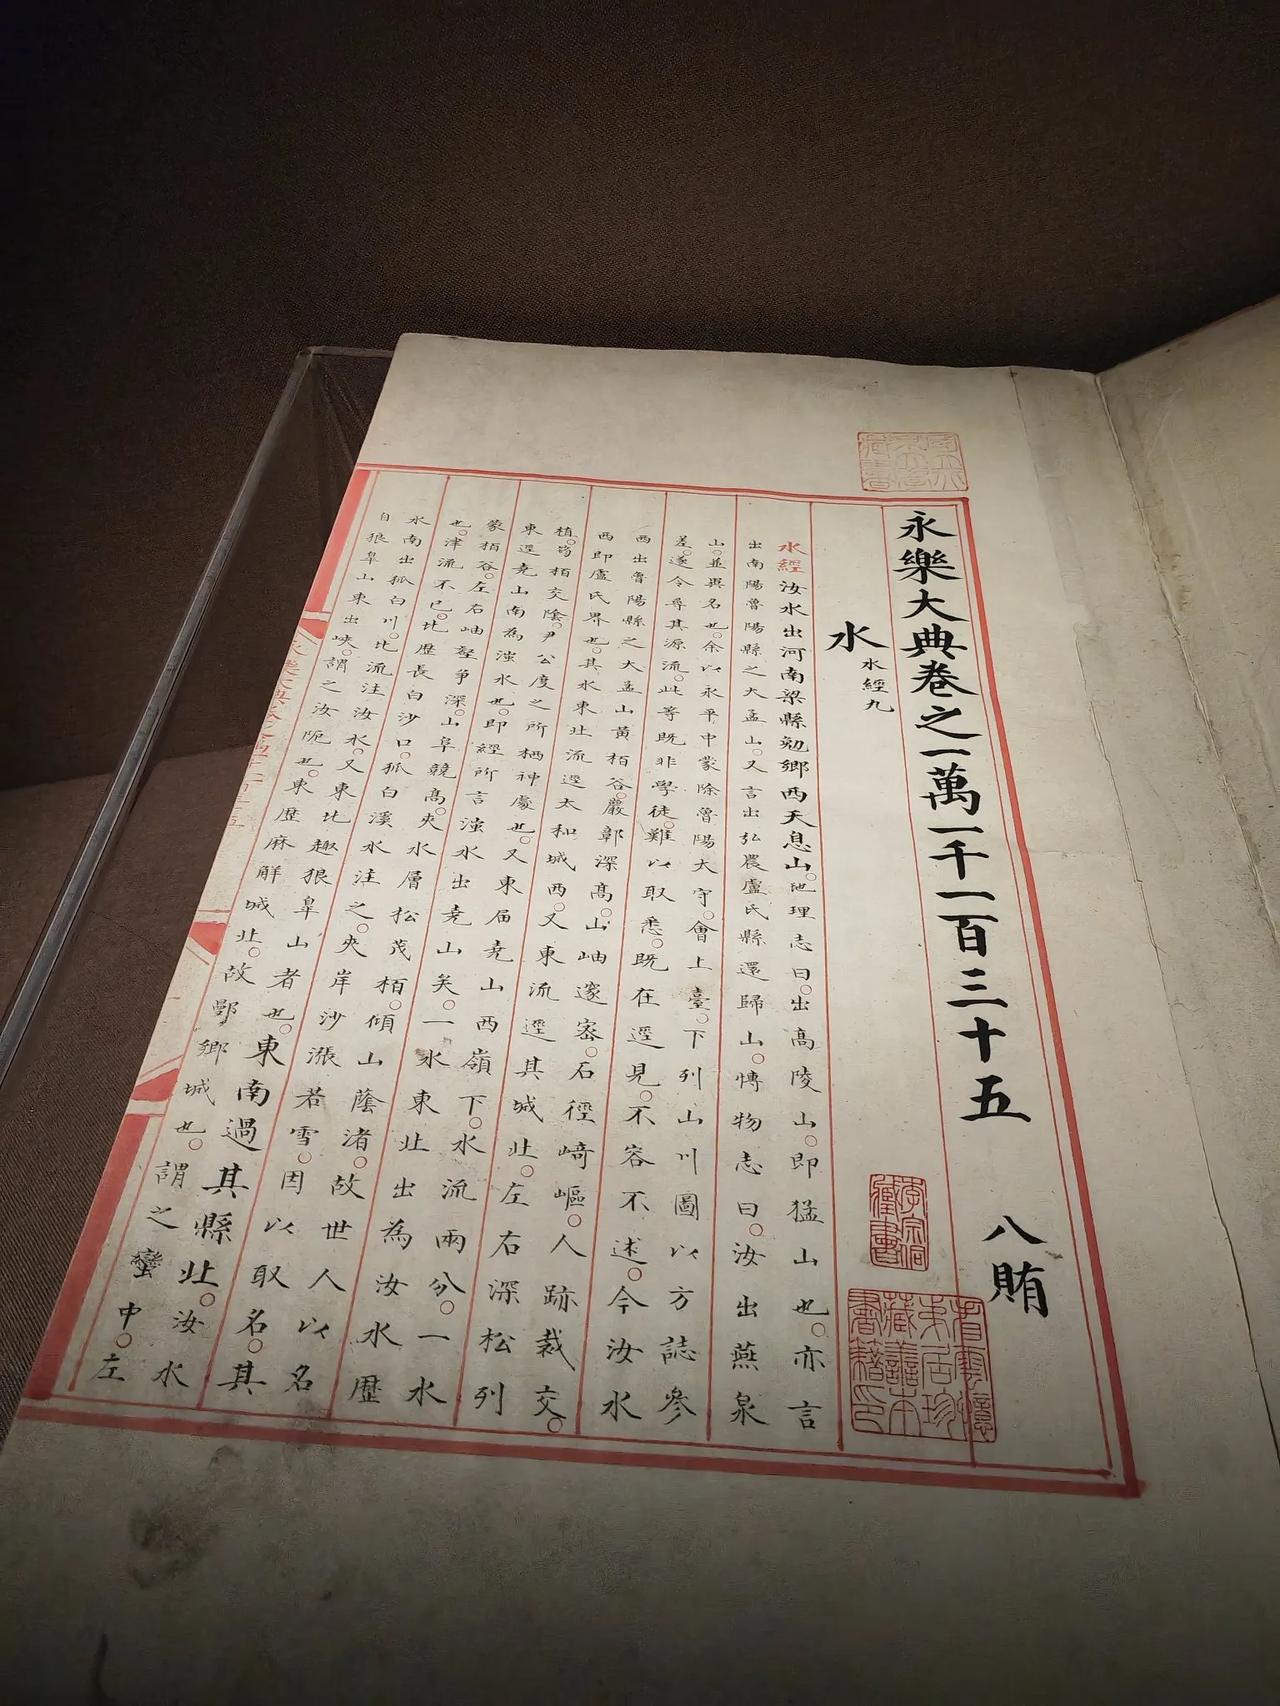 永樂大典卷之一萬一千一百三十五 八賄
水 水經九
水經汝水出河南梁縣勉鄉西天息山。地理志曰。出高陵山。即猛山也。亦言
出南陽魯陽縣之大盂山。又言出弘農盧氏縣還歸山。博物志曰。汝出燕泉
山。並異名也。余以永平中蒙除魯陽太守。會上臺。下列山川圖以方誌參
差。遂令尋其源流。此等既非學徒。難以取悉。既在逕見。不容不述。今汝水
西出魯陽縣之大盂山黃栢谷。巖鄣深高。山岫邃密。石徑﨑嶇。人跡裁交。
西即盧氏界也。其水東北流逕太和城西。又東流逕其城北。左右深松列
植。筠栢交陰。尹公度之所栖神處也。又東届堯山西嶺下。水流兩分。一水
東逕堯山南為滍水也。即經所言滍水出堯山矣。一水東北出為汝水歷
蒙栢谷。左右岫壑爭深。山阜競高。夾水層松茂栢。傾山蔭渚。故世人以名
也。津流不已。北歷長白沙口。狐白溪水注之。夾岸沙漲若雪。因以取名。其
水南出狐白川。北流注汝水。又東北趣狼皋山者也。東南過其縣北。汝水
自狼皋山東出峽。謂之汝阨也。東歷麻解城北。故鄤鄉城也。謂之蠻中。左